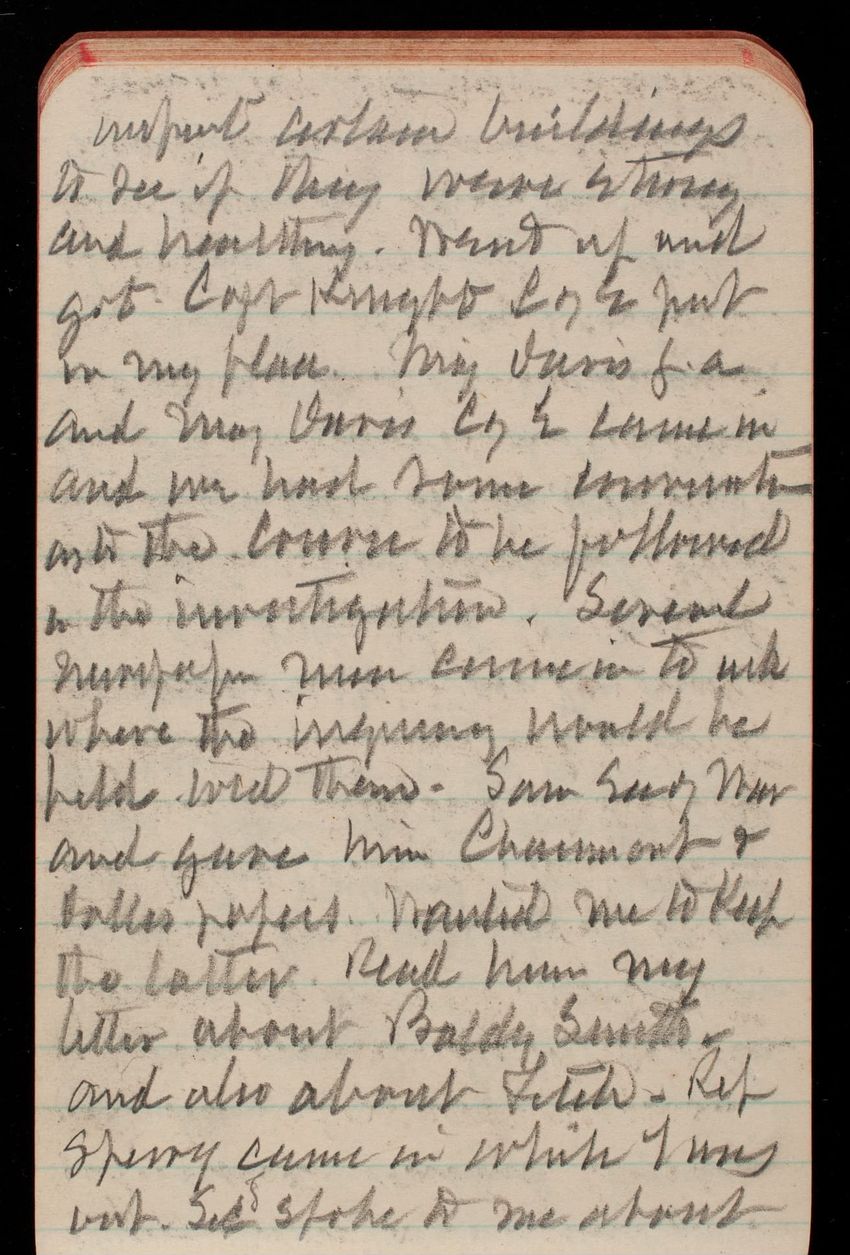 inspect certain buildings
to see if they were strong
and healthy. Went up and
got Capt Knight Co E put
in my place. Maj Davis J. a
and Maj Davis Co E came in
and we had some conversation
as to the course to be followed
in the investigation. Several
Newspaper men came in to ask
where the inquiry would be
held told them - Saw Secy War
and gave him Chaumont &
papers. Wanted me to Keep
the latter. Read him my
letter about Baldy Smith -
and also about Fitch - Rep
Sperry came in while I was
out. Sec spoke to me about